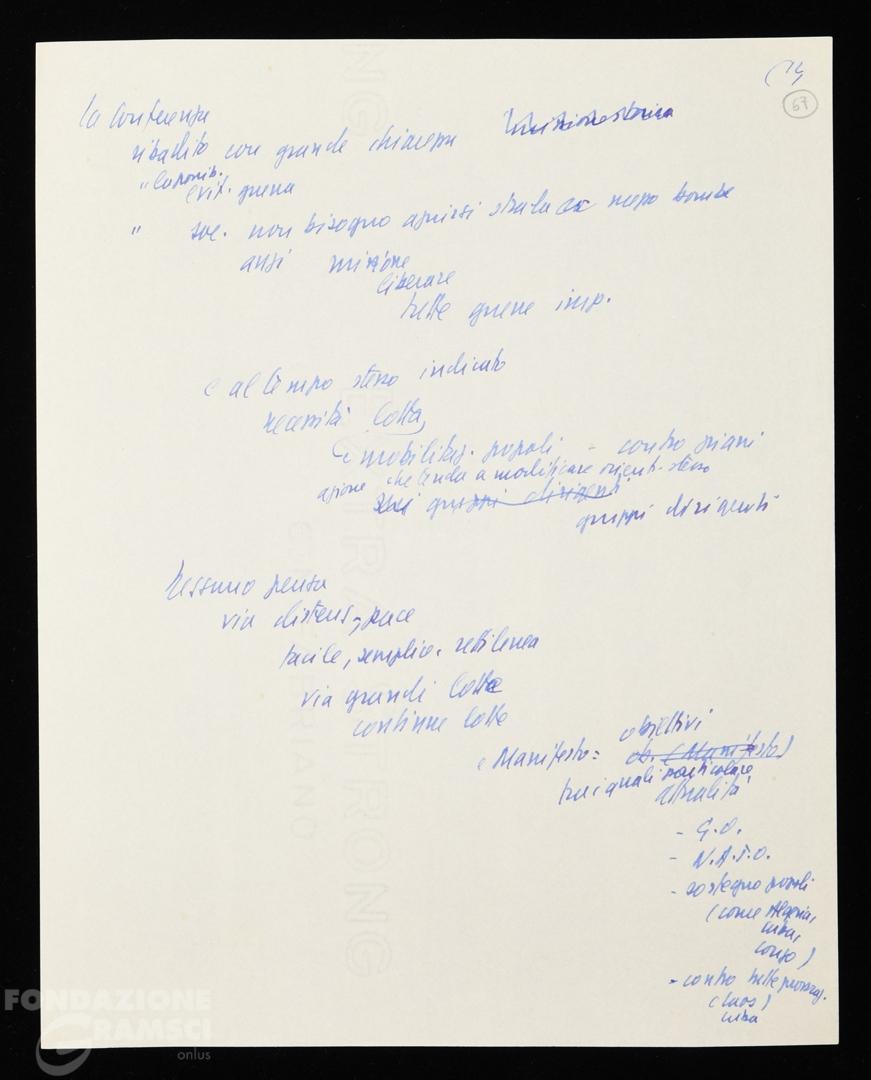 67
La Conferenza
ribadito con grande chiarezza
"la possib.
evit. guerra
" soc. non bisogno aprirsi strada mezzo bombe
anzi missione
liberare
dalle guerre imp.
e al tempo stesso indicato
necessità lotta,
e mobilitaz. popoli - contro piani
azione che tenda a modificare orient. stesso
gruppi dirigenti
gruppi dirigenti
Nessuno pensa
via distens, pace
facile, semplice, rettilinea
via grandi lotte
continue lotte
obiettivi
Manifesto: ob. (Manifesto)
tra i quali particolare
attualità
- G.O.
- N.A.T.O.
- sostegno popoli
(come Algeria,
cuba,
congo)
- contro tutte provocaz.
(Laos)
cuba
FONDAZIONE
GRAMSCI
onlus